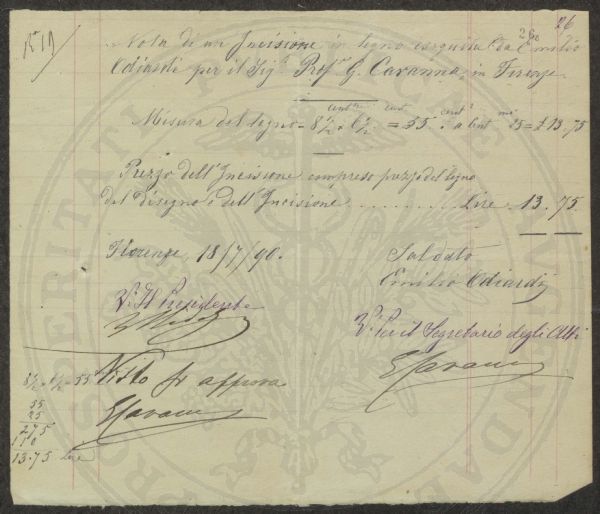 N 19
26
26
Nota di un Incisione in legno eseguita da Emilio
Odiardi per il Sig.r Prof.r G. Cavanna, in Firenze
Misura del legno = 8½ × 6½ = 55 : a Cent.mi 25 = £ 13.75
Prezzo dell'Incisione compreso prezzo del legno
del Disegno e dell'Incisione ........ Lire. 13.75
Florenze, 18/7/90.
Saldato
Emilio Odiardi
V.° Il Presidente
V.° Per il Segretario degli Atti
GCavanna
Visto si approva
GCavanna
8½ × 6½ = 55
55
25
275
110
13.75 Lire